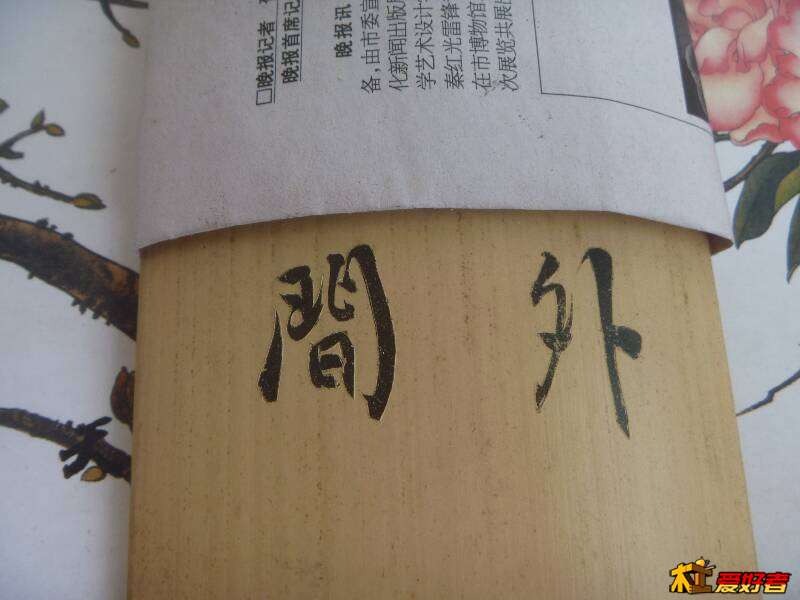 □晚报记者
晚报首席记
晚报讯
备,由市委宣
化新闻出版局
学艺术设计学
秦红光雷锋
在市博物馆
次展览共展出
外
間
杠爱好者